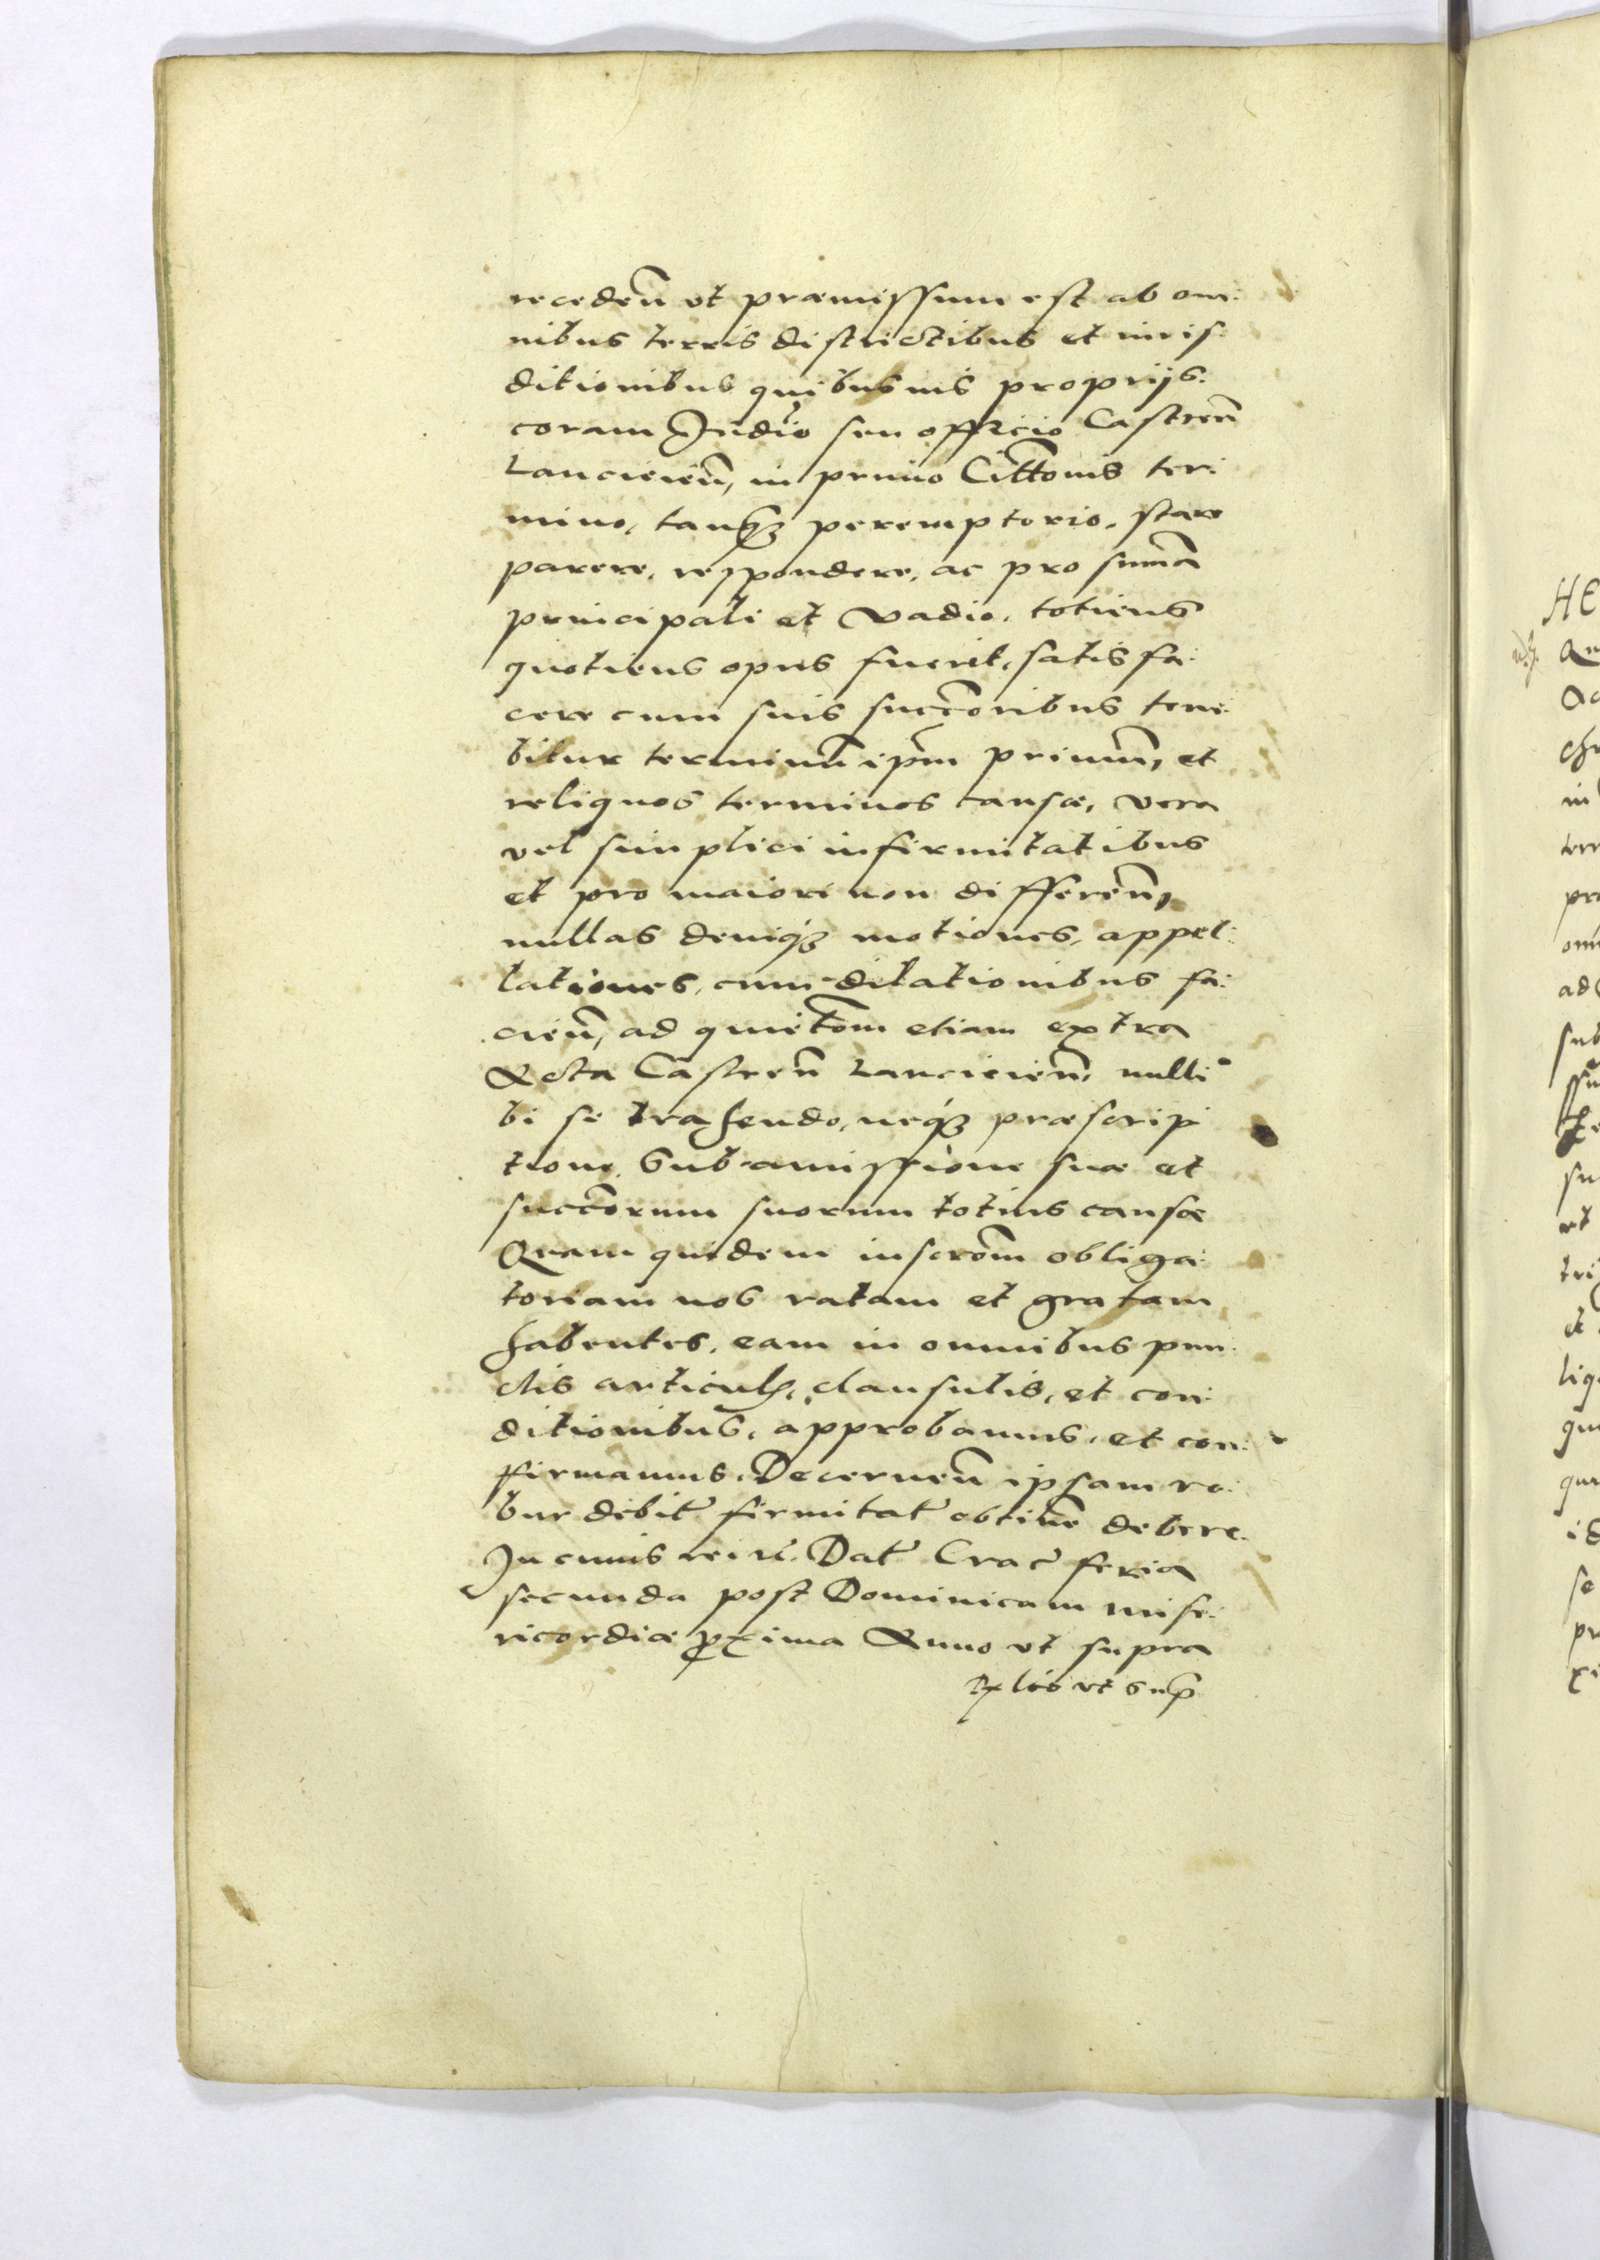 recedeñ vt præmissum est ab om:
nibus terris districtibus et iuris:
ditionibus quibusuis proprijs.
coram Iudio seu officio Castreñ
Lancicieñ, in primo Cittonis ter:
mino, tanq3 peremptorio, stare
parere, respondere, ac pro summa
principali et vadio, totiens
quotiens opus fuerit, satisfa:
cere cum suis succoribus tene:
bitur terminũ ipm primum, et
reliquos terminos causæ, vera
vel simplici infirmitatibus
et pro maiori non differeñ,
nullas deniq3 motiones, appel:
lationes, cum dilationibus fa:
cieñ, ad quietom etiam extra
Acta Castreñ Lancicieñ, nulli
bi se trahendo, neq3 præscrip
tione. Sub amissione suæ et
succorum suorum totius causæ
Quam quidem inscrom obliga:
toriam nos ratam et gratam
habentes, eam in omnibus pun:
ctis articulis, clausulis, et con:
ditionibus, approbamus, et con:
firmamus. Decerneñ ipsam ro:
bur debit firmitat obtine debere.
In cuius rei Dat Crac feria
secunda post Dominicam mise:
ricordiæ pxima Anno vt supra
Rlio vt sup